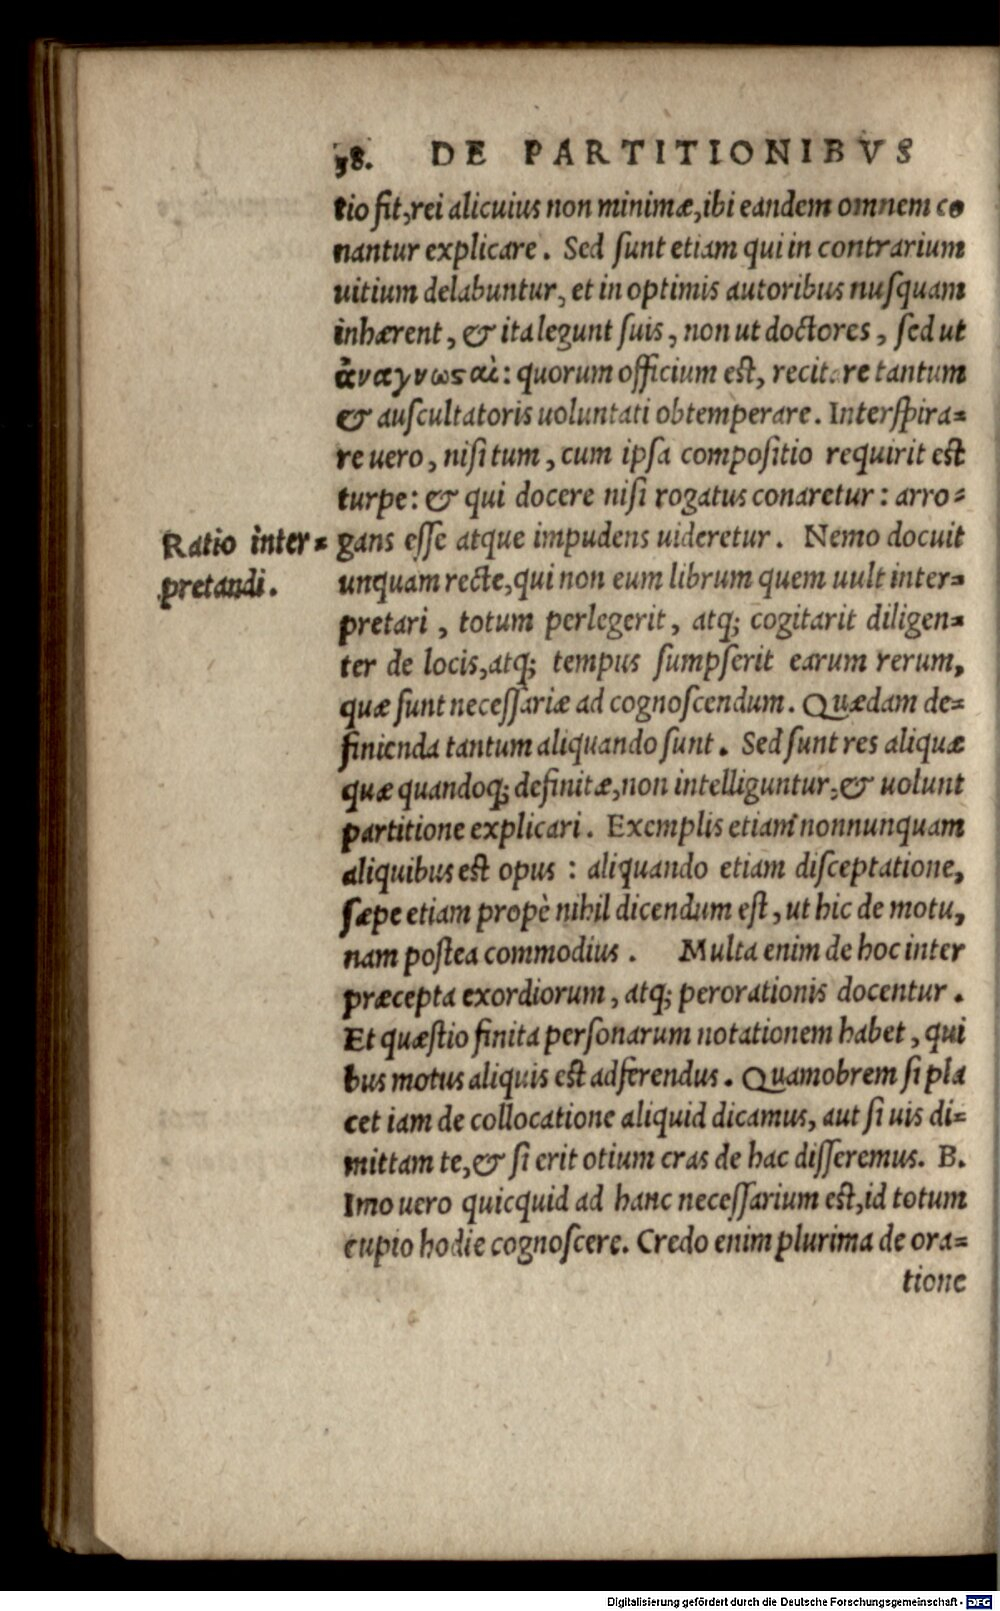 38. DE PARTITIONIBVS
tio fit, rei alicuius non minimæ, ibi eandem omnem co
nantur explicare. Sed ſunt etiam qui in contrarium
uitium delabuntur, et in optimis autoribus nuſquam
inhærent, & ita legunt ſuis, non ut doctores, ſed ut
ἀναγνωςαὶ: quorum officium eſt, recitare tantum
& auſcultatoris uoluntati obtemperare. Interſpira=
re uero, niſi tum, cum ipſa compoſitio requirit eſt
turpe: & qui docere niſi rogatus conaretur: arro=
Ratio inter=
pretandi.
gans eſſe atque impudens uideretur. Nemo docuit
unquam recte, qui non eum librum quem uult inter=
pretari, totum perlegerit, atq; cogitarit diligen=
ter de locis, atq; tempus ſumpſerit earum rerum,
quæ ſunt neceſſariæ ad cognoſcendum. Quædam de=
finienda tantum aliquando ſunt. Sed ſunt res aliquæ
quæ quandoq; definitæ, non intelliguntur, & uolunt
partitione explicari. Exemplis etiam nonnunquam
aliquibus eſt opus: aliquando etiam diſceptatione,
ſæpe etiam propè nihil dicendum eſt, ut hic de motu,
nam poſtea commodius. Multa enim de hoc inter
præcepta exordiorum, atq; perorationis docentur.
Et quæſtio finita perſonarum notationem habet, qui
bus motus aliquis eſt adferendus. Quamobrem ſi pla
cet iam de collocatione aliquid dicamus, aut ſi uis di=
mittam te, & ſi erit otium cras de hac diſſeremus. B.
Imo uero quicquid ad hanc neceſſarium eſt, id totum
cupio hodie cognoſcere. Credo enim plurima de ora=
tione
Digitalisierung gefördert durch die Deutsche Forschungsgemeinschaft - DFG